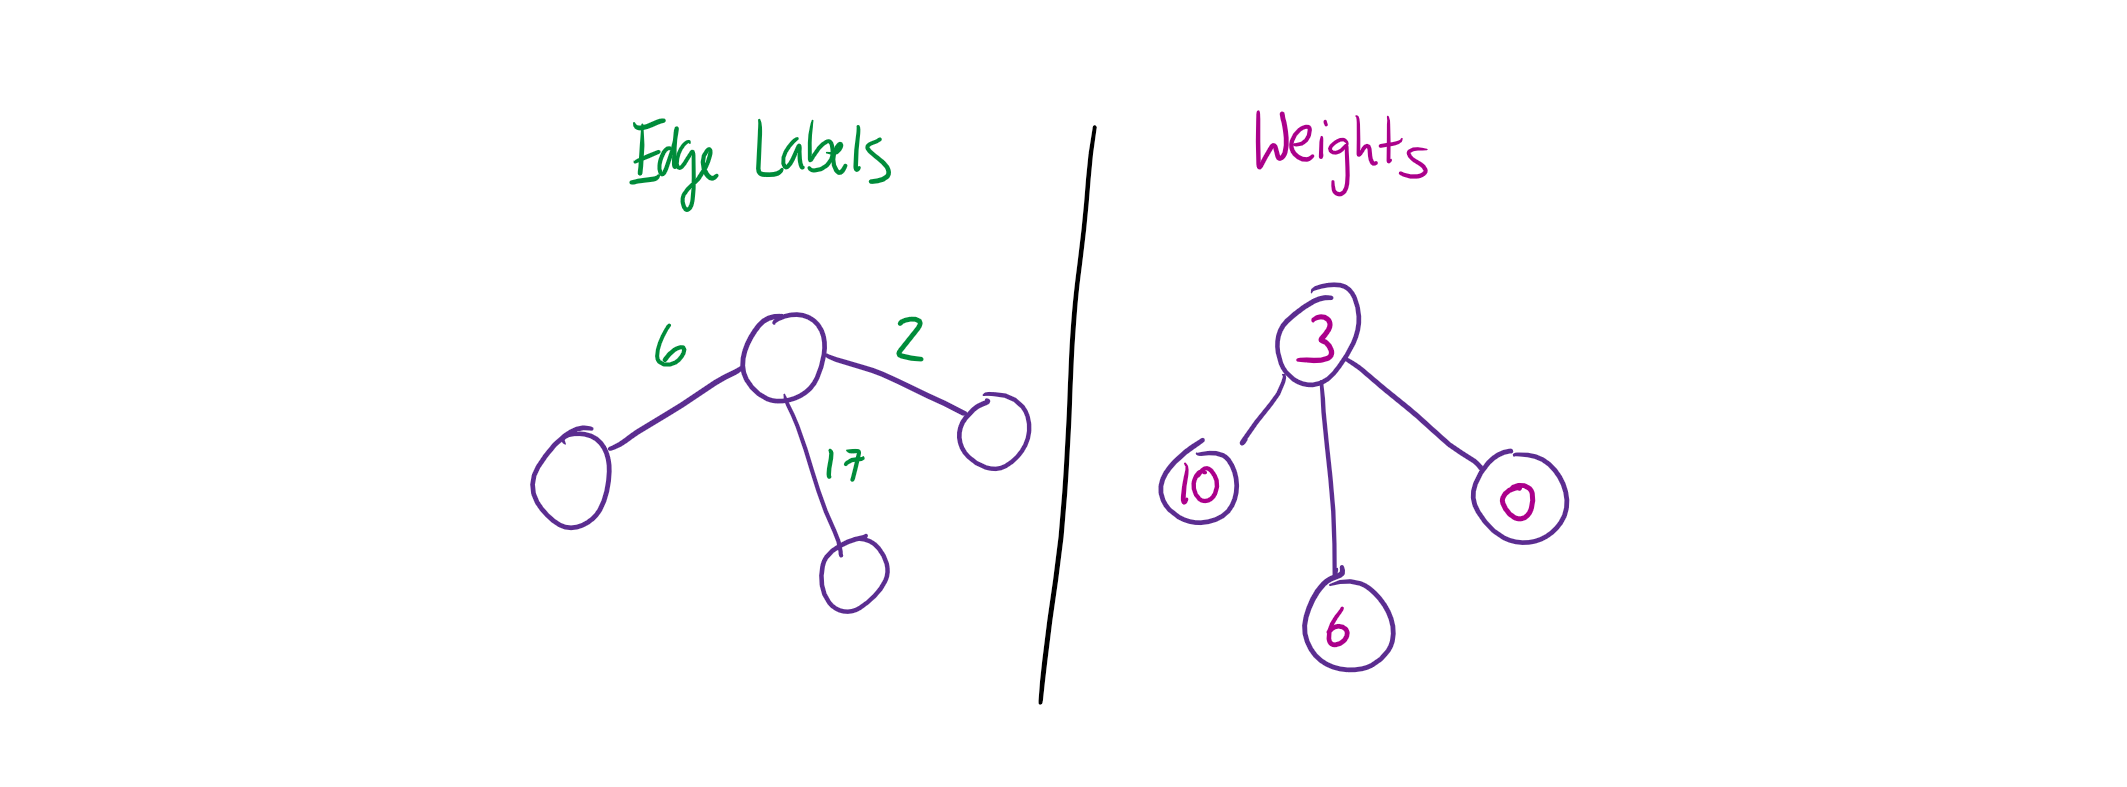 Edge Labels
6
2
17
Weights
3
10
0
6